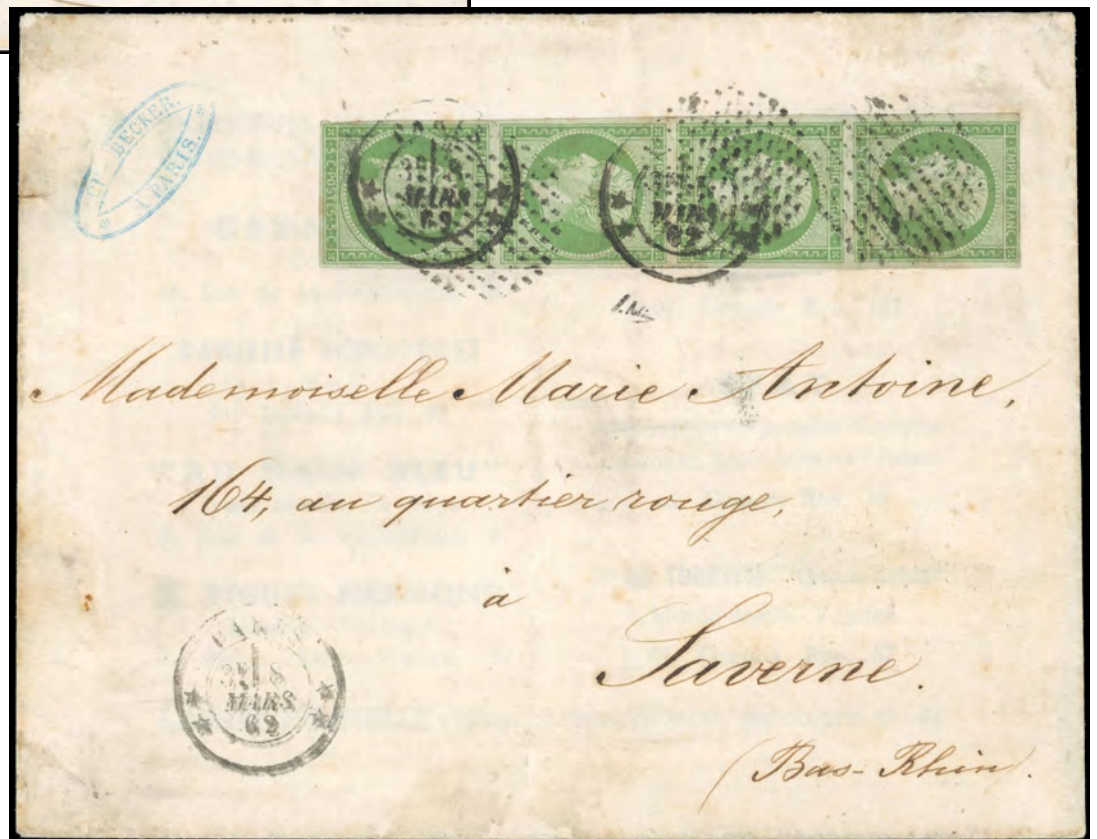 DECKER.
A PARIS.
EMPIRE FRANC.
EMPIRE FRANC.
PARIS
8
MARS
62
MARS
62
Mademoiselle Marie Antoine,
164, au quartier rouge,
à
Saverne.
(Bas-Rhin).
PARIS
8
MARS
62